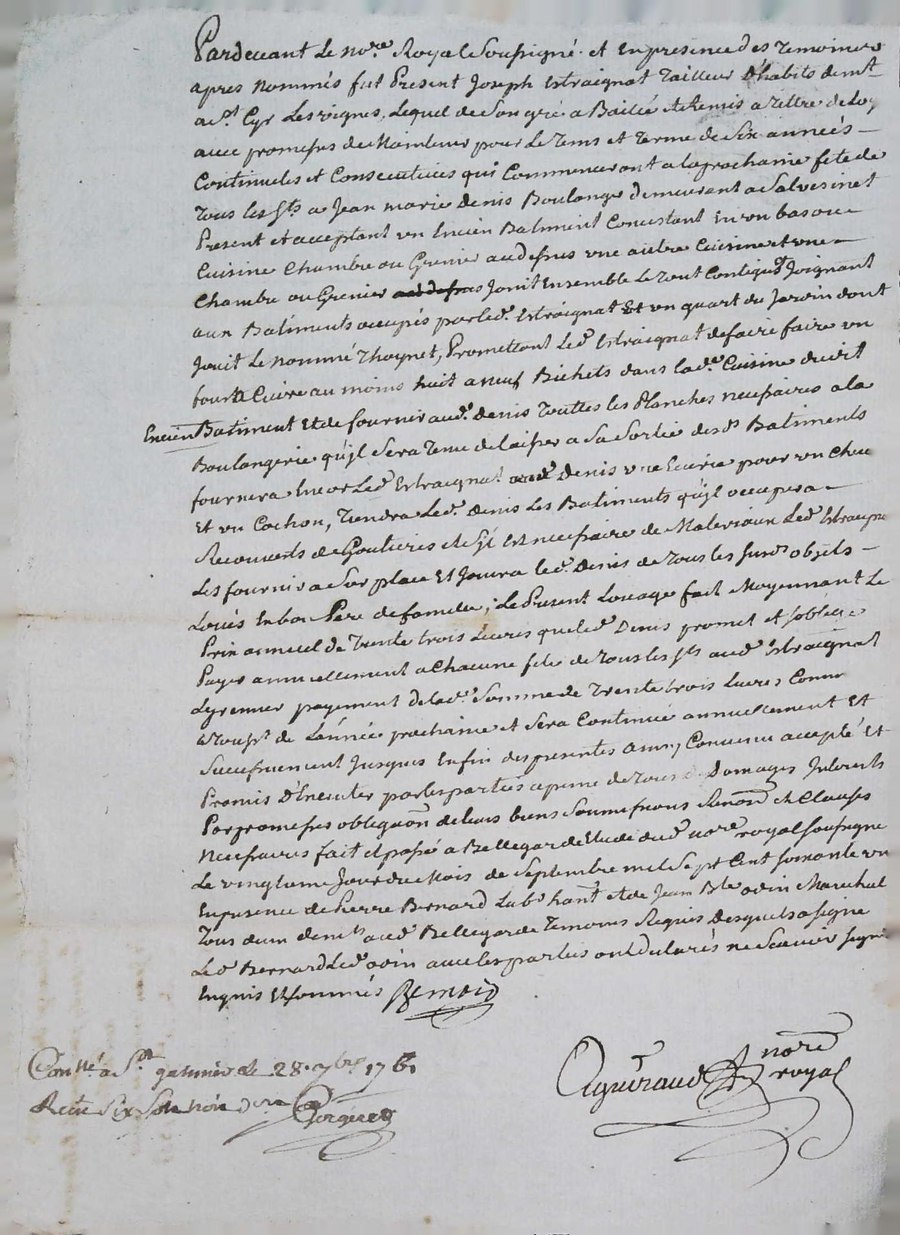 Pardevant Le no.re Royal Soussigné et En presence des Temoins
apres nommés fut Present Joseph Estraignat Tailleur D'habits dem.t
a S.t Cyr Les vignes, Lequel de Son gré a Baillé et Remis a Tittre de Loy
avec promesses de Maintenir pour Le Tems et Terme de Six années
Continueles et Consecutives qui Commenceront a la prochaine fete de
Tous les S.ts a Jean marie Denis Boulanger demeurant a Salvesinet
Present et acceptant un Encien Batiment Concistant En un bas ou
Cuisine Chambre ou Grenier au dessus une autre Cuisine et une
Chambre ou Grenier au dessus Joint Ensemble Le tout Contigu et Joignant
aux Batiments occupés par led. Estraignat Et un quart du Jardin dont
Jouit Le nommé Thoynet, Promettant Led. Estraignat de faire faire un
four a Cuire au moins huit a neuf Bichets dans lad.e Cuisine dudit
Encien Batiment Et de fournir aud. Denis Touttes les Planches nessaires a la
Boulangerie qu'jl Sera Tenu de laisser a Sa Sortie desd.s Batiments
fournira Encor Led. Estraignat aud. Denis une Ecurie pour un Cheval
Et un Cochon, Tiendra Led. Denis Les Batiments qu'jl occupera
Recouverts de Goutieres et S'jl Est nessaire de Materiaux Led. Estraignat
Les fournir a Sur place Et Jouira led. Denis de Tous les Susd. objets
Loués En bon Pere de famille; Le Present Louage fait Moyennant Le
Prix annuel de Trente trois Livres que led. Denis promet et S'oblige
Payer annuellement a Chacune fete de Tous les S.ts aud. Estraignat
Le premier payement de lad. Somme de Trente trois Livres Comm
de L'année prochaine et Sera Continué annuellement Et
Successivement Jusques Enfin des presentes ainsy Convenu accepté Et
Promis D'Executer par les parties a peine de Tous Domages Interests
Par promesses obligaon de leurs biens Soumissions Renon.s et Clauses
Nessaires fait et passé a Bellegarde Etude dud. no.re royal soussigné
Le vingtieme Jour du Mois de Septembre mil Sept Cent soixante un
En presence de Pierre Bernard Lab.r hant et de Jean B.te odin Marechal
Tous deux dem.ts aud. Bellegarde Temoins Requis Desquels a signé
Led. Bernard Led. odin avec les parties ont declarés ne Scavoir signer
Enquis Et Sommés Bernard
Con.llé a S.t galmier le 28. 7bre 1761
Recu Six Sols
no.re
Aguiraud royal